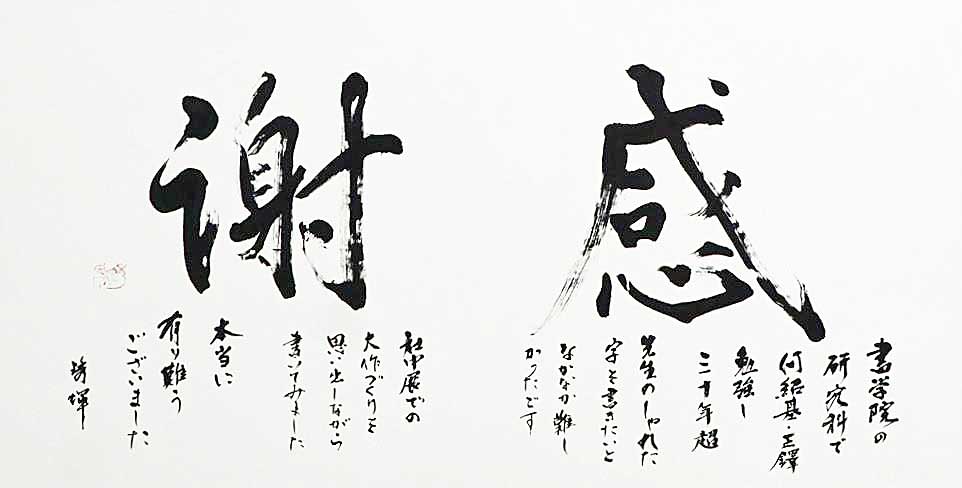 感謝
書学院の
研究科で
何紹基・王鐸
勉強し
三十年超
先生のしゃれた
字を書きたいと
なかなか難し
かったです
社中展での
大作づくりを
思い出しながら
書いてみました
本当に
有り難う
ございました